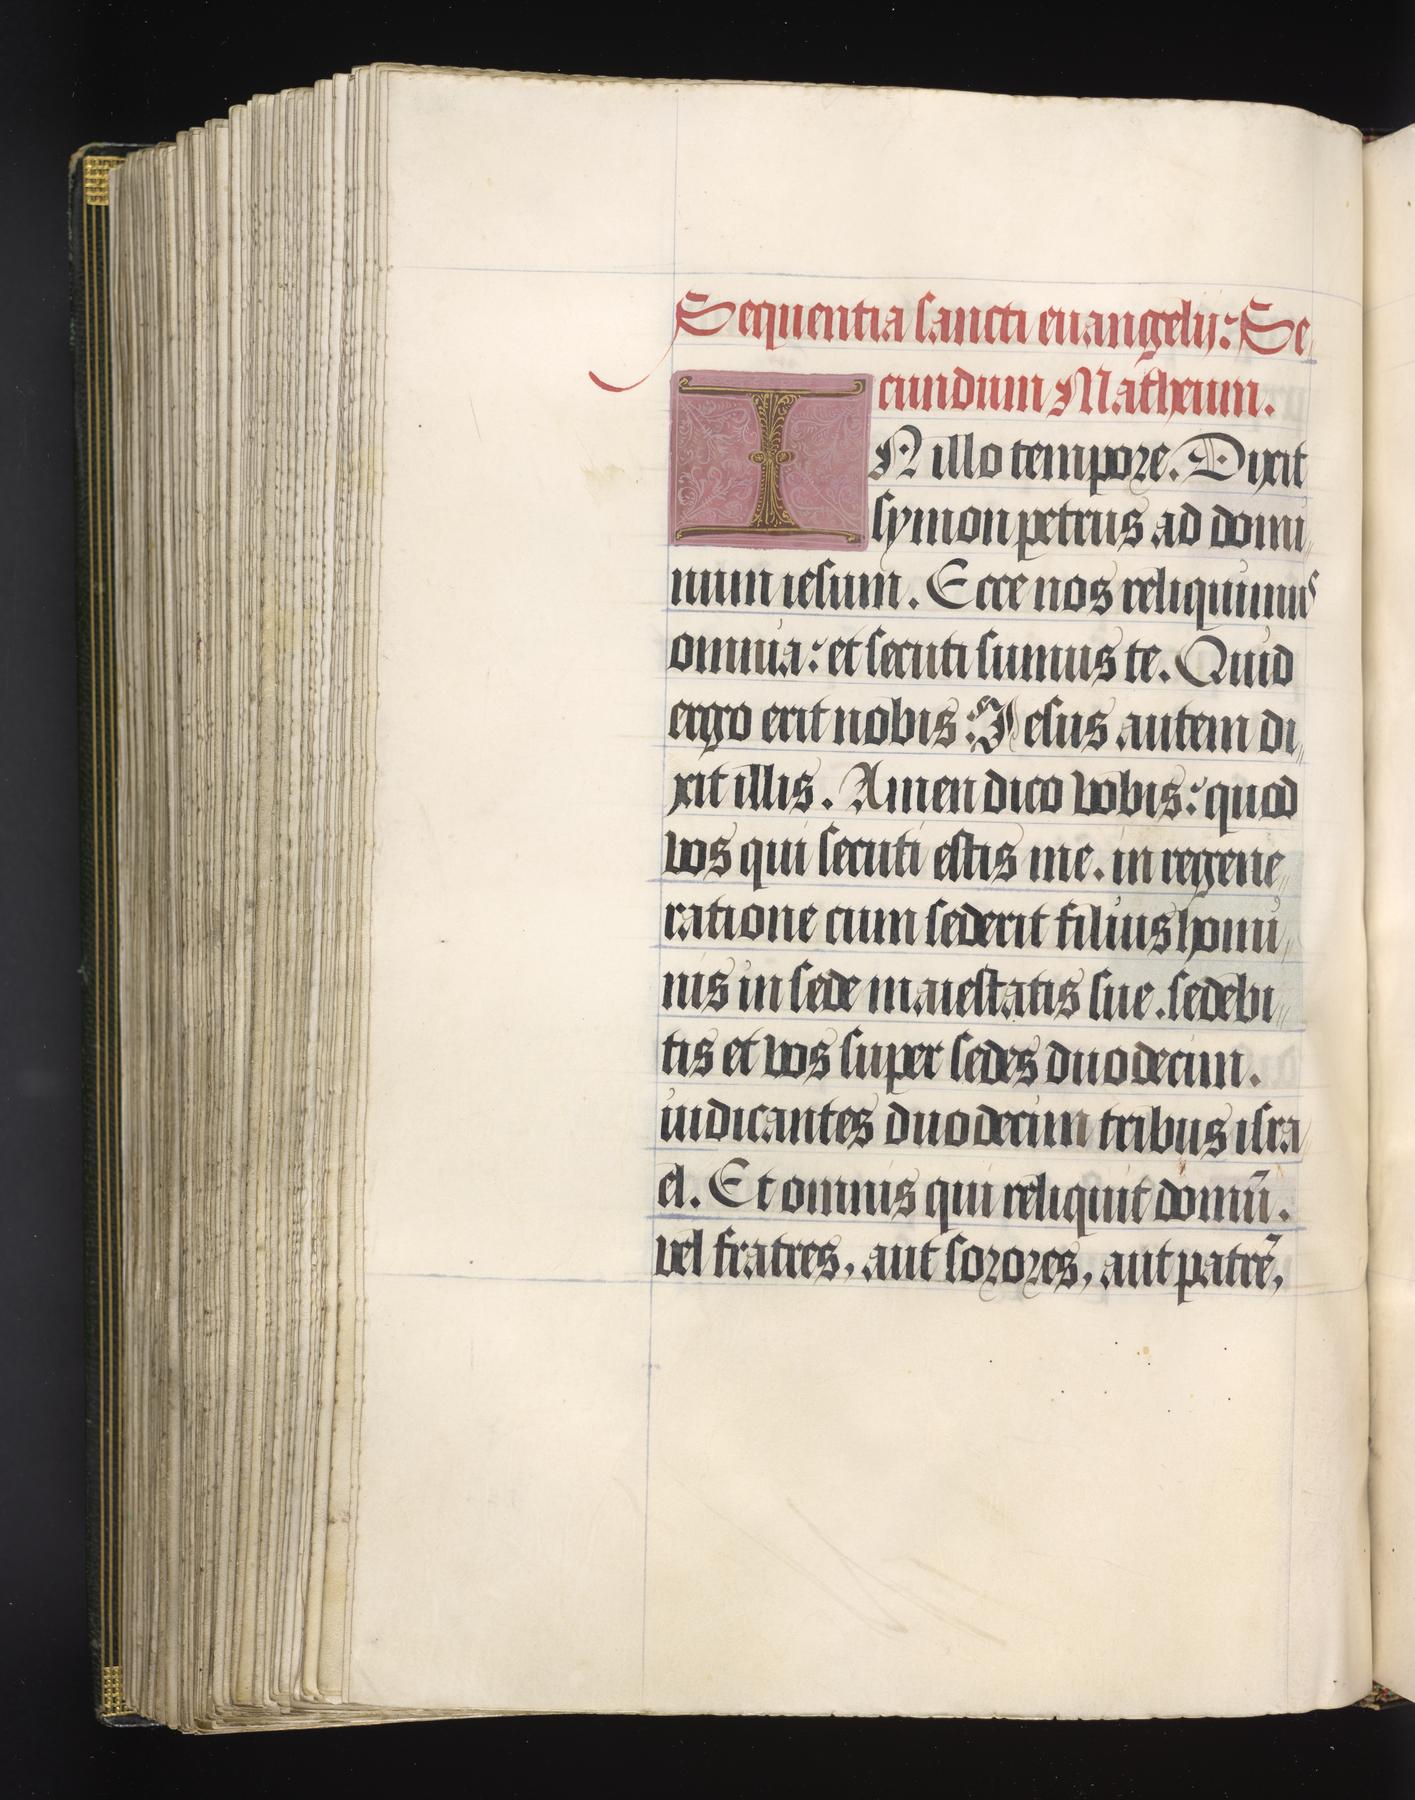 Sequentia sancti euangelij: Se
cundum Matheum.
IN illo tempore. Dixit
symon petrus ad domi
num iesum. Ecce nos reliquimus
omnia: et secuti sumus te. Quid
ergo erit nobis: Iesus autem di
xit illis. Amen dico vobis: quod
vos qui secuti estis me. in regene
ratione cum sederit filius homi
nis in sede maiestatis sue. sedebi
tis et vos super sedes duodecim.
iudicantes duodecim tribus isra
el. Et omnis qui reliquit domū.
vel fratres, aut sorores, aut patrē,